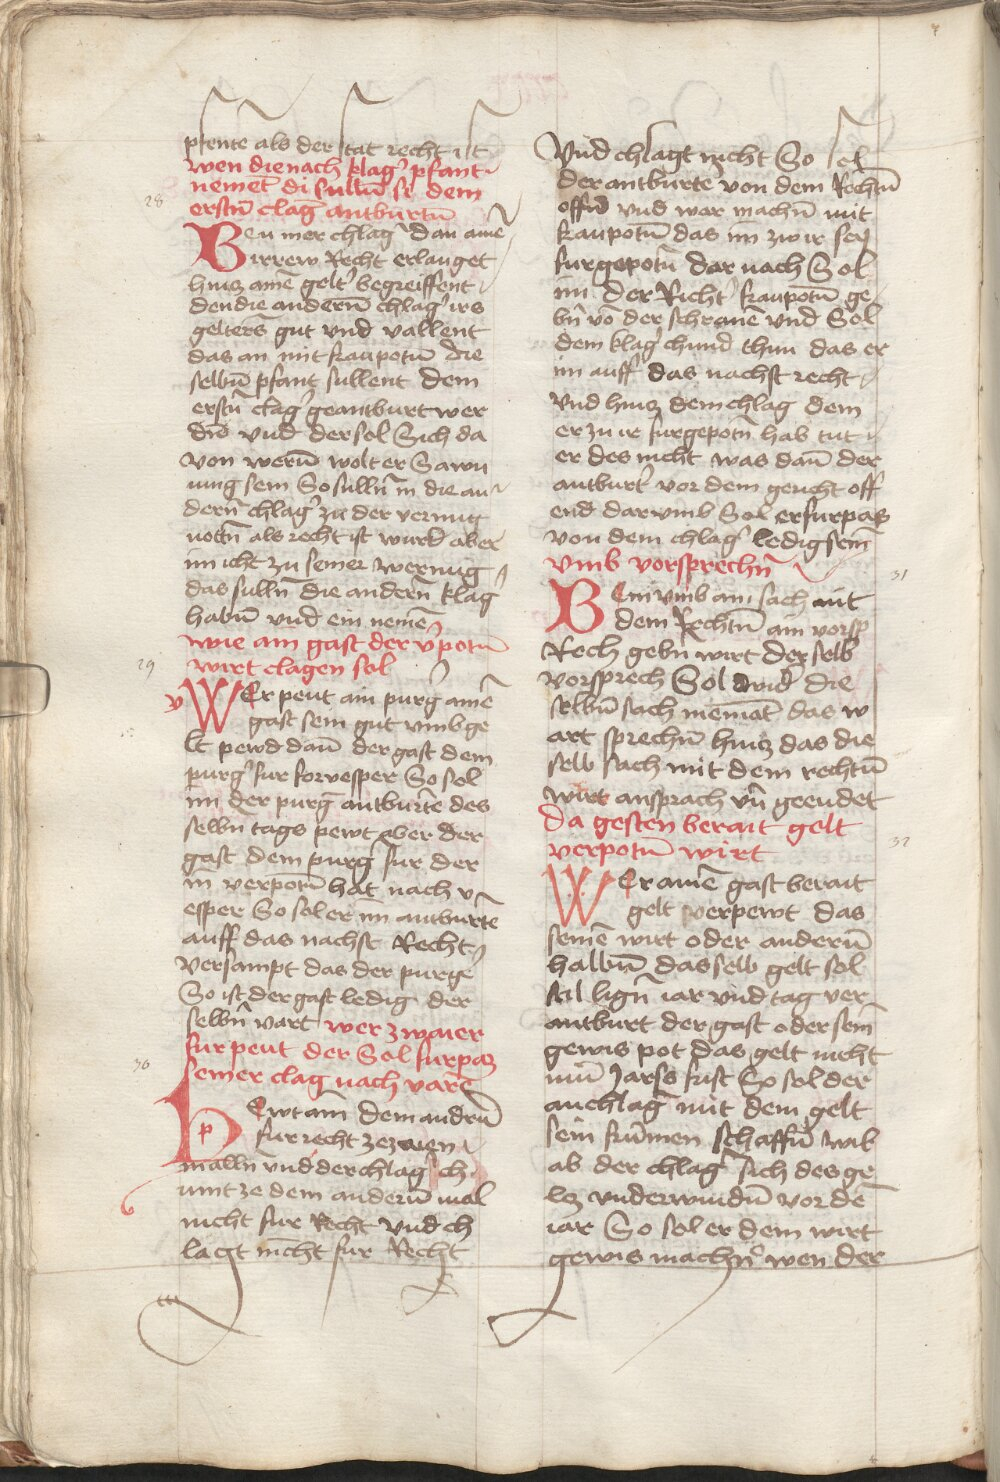 pfente als der stat recht ist
wen die nach klagˀ pfant
nemet di sulln̄ sē dem
erstn̄ clagˀ antburtn̄
28
Ben mer chlagˀ dan ainē
irrew Recht erlanget
hincz ainē geltˀ begreiffent
den die andern̄ chlagˀ irs
gelters gut vnd vallent
das an mit fraupotn̄ die
selbn̄ pfant sullent dem
erstn̄ clagˀ geantburt wer
den vnd der sol Sich da
von wern̄ wolt er Sawm
ung sein So sulln̄ in die an
dern̄ chlagˀ zu der vermug
nottn̄ als recht ist wurd aber
im icht zu seiner wernug
das sulln̄ die andern̄ klag
habn̄ vnd ein nemē
wie ain gast der v̄potn̄
wirt clagen sol
29
WEr peut ain purgˀ ainē
gast sein gut vmb ge
lt pewd dan̄ der gast dem
purgˀ fur for vesper So sol
im der purgˀ antburtē des
selbn̄ tags pewt aber der
gast dem purgˀ fur der
im verpotn̄ hat nach v
esper So sol er im antburtē
auff das nachst Recht
versampt das der purge
So ist der gast ledig der
selbn̄ vart wer zwaier
fur peut der Sol furpas
seiner clag nach varē
30
PEwt ain dem andrn̄
fur recht ze zwien
malln vnd der chlagˀ ch
umt ze dem andern̄ mal
nicht fur Recht vnd ch
lagt nicht fur Recht
Vnd chlagt nicht So sol
der antburtē von dem Rechtn̄
offn̄ vnd war machn̄ mit
fraupotn̄ das im zwir sey
furgepotn̄ dar nach Sol
im der Richtˀ fraupotn̄ ge
bn̄ vō der schranē vnd Sol
dem klagˀ chund thun das er
im auff das nachst recht
vnd hincz dem chlagˀ dem
er zu ir furgepotn̄ hab tut
er des nicht was dan̄ der
antburtˀ vor dem gericht off
end dar vmb Sol er furpas
von dem chlagˀ ledig sein
vmb vorsprechn̄
31
BEm vmb ain sach mit
dem Rechtn̄ ain vorsp
Rech gebn̄ wirt der selb
vorsprech Sol wider die
selbn̄ sach niemāt das w
art sprechn̄ hincz das die
selb sach mit dem rechtn̄
wirt ansprach vn̄ geendet
da gesten berait gelt
verpotn̄ wirt
32
WEr ainē gast berait
gelt verpewt das
seinē wirt oder andern̄
halbn̄ das selb gelt sol
stil lign̄ iar vnd tag ver
antburt der gast oder sein
gewis pot das gelt nicht
inn̄ Jars frist So sol der
anchlagˀ mit dem gelt
sein frumen schaffn̄ wil
ab der chlagˀ sich des ge
lcz vnderwindn̄ vor dē
iar So sol er dem wirt
gewis machn̄ wen der